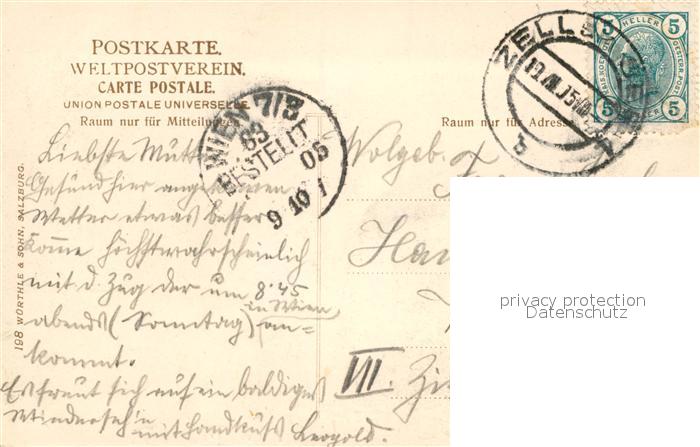 POSTKARTE.
WELTPOSTVEREIN.
CARTE POSTALE.
UNION POSTALE UNIVERSELLE
Raum nur für Mitteilungen
Raum nur für Adresse
198 WÜRTHLE & SOHN, SALZBURG.
WIEN 7/3
63
BESTELLT
05
9 10
ZELL
5 HELLER 5
5 5
Liebste Mutter
Gesund hier angekommen
Wetter etwas besser
Komme höchstwahrscheinlich
mit d. Zug der um 8.45
in Wien
abends (Sonntag) an-
kommt.
Es freut sich auf ein baldiges
Wiedersehn
mit Handkuss Leopold.
Wolgeb.
VII.
privacy protection
Datenschutz